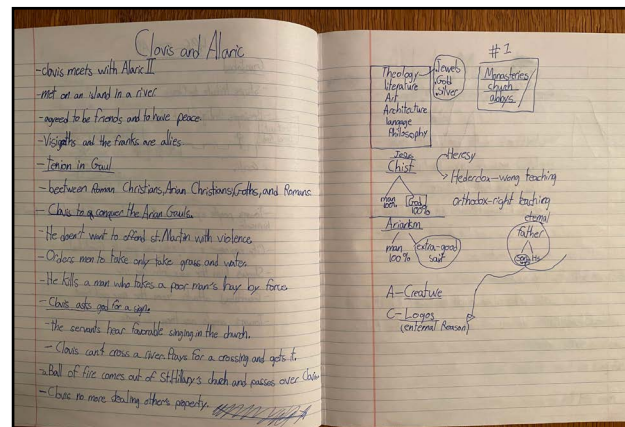 Clovis and Alaric
-clovis meets with Alaric II
-met on an island in a river
-agreed to be friends and to have peace.
-Visigoths and the franks are allies.
-Tension in Gaul
-beetween Roman Christians, Arian Christians, Goths, and Romans
-Clovis to conquer the Arian Gauls.
-He doesn't want to offend st. Martin with violence.
-Orders men to take only take grass and water.
-He kills a man who takes a poor man's hay by force.
-Clovis asks god for a sign.
-the servants hear favorable singing in the church.
-Clovis can't cross a river. Prays for a crossing and gets it.
-a Ball of fire comes out of St Hillary's church and passes over Clovis
-Clovis no more stealing other's property.
#1
Theology
literature
Art
Architecture
language
Philosophy
Jewels
Gold
Silver
Monasteries
church
abbys
Jesus
Christ
man
100%
God
100%
Heresy
Hederdox-wrong teaching
orthodox-right teaching
Arianism
man
100%
extra-good
saint
eternal
Father
A-Creature
C-Logos
(enternal Reason)